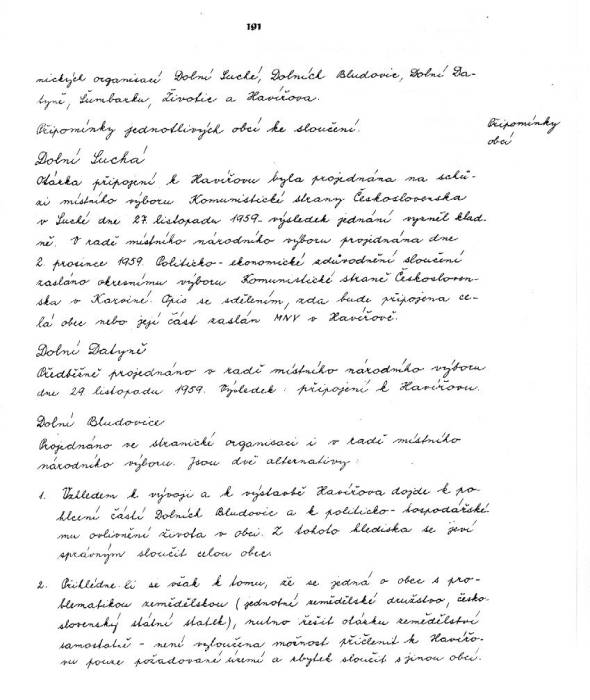 191
nických organisací Dolní Suché, Dolních Bludovic, Dolní Da-
tyně, Šumbarku, Životic a Havířova.
Připomínky jednotlivých obcí ke sloučení.
Připomínky
obcí
Dolní Suchá
Otázka připojení k Havířovu byla projednána na schů-
zi místního výboru Komunistické strany Československa
v Suché dne 27. listopadu 1959 - výsledek jednání vyzněl klad-
ně. V radě místního národního výboru projednána dne
2. prosince 1959. Politicko - ekonomické zdůvodnění sloučení
zasláno okresnímu výboru Komunistické straně Českosloven-
ska v Karviné. Opis se sdělením, zda bude připojena ce-
lá obec nebo její část zaslán MNV v Havířově.
Dolní Datyně
Předběžně projednáno v radě místního národního výboru
dne 29. listopadu 1959. Výsledek: připojení k Havířovu.
Dolní Bludovice
Projednáno ve stranické organisaci i v radě místního
národního výboru. Jsou dvě alternativy:
1. Vzhledem k vývoji a k výstavbě Havířova dojde k po-
hlcení částí Dolních Bludovic a k politicko - hospodářské-
mu ovlivnění života v obci. Z tohoto hlediska se jeví
správným sloučit celou obec.
2. Přihlédne-li se však k tomu, že se jedná o obec s pro-
blematikou zemědělskou (jednotné zemědělské družstvo, česko-
slovenský státní statek), nutno řešit otázku zemědělství
samostatně - není vyloučena možnost přičlenit k Havířo-
vu pouze požadované území a zbytek sloučit s jinou obcí.